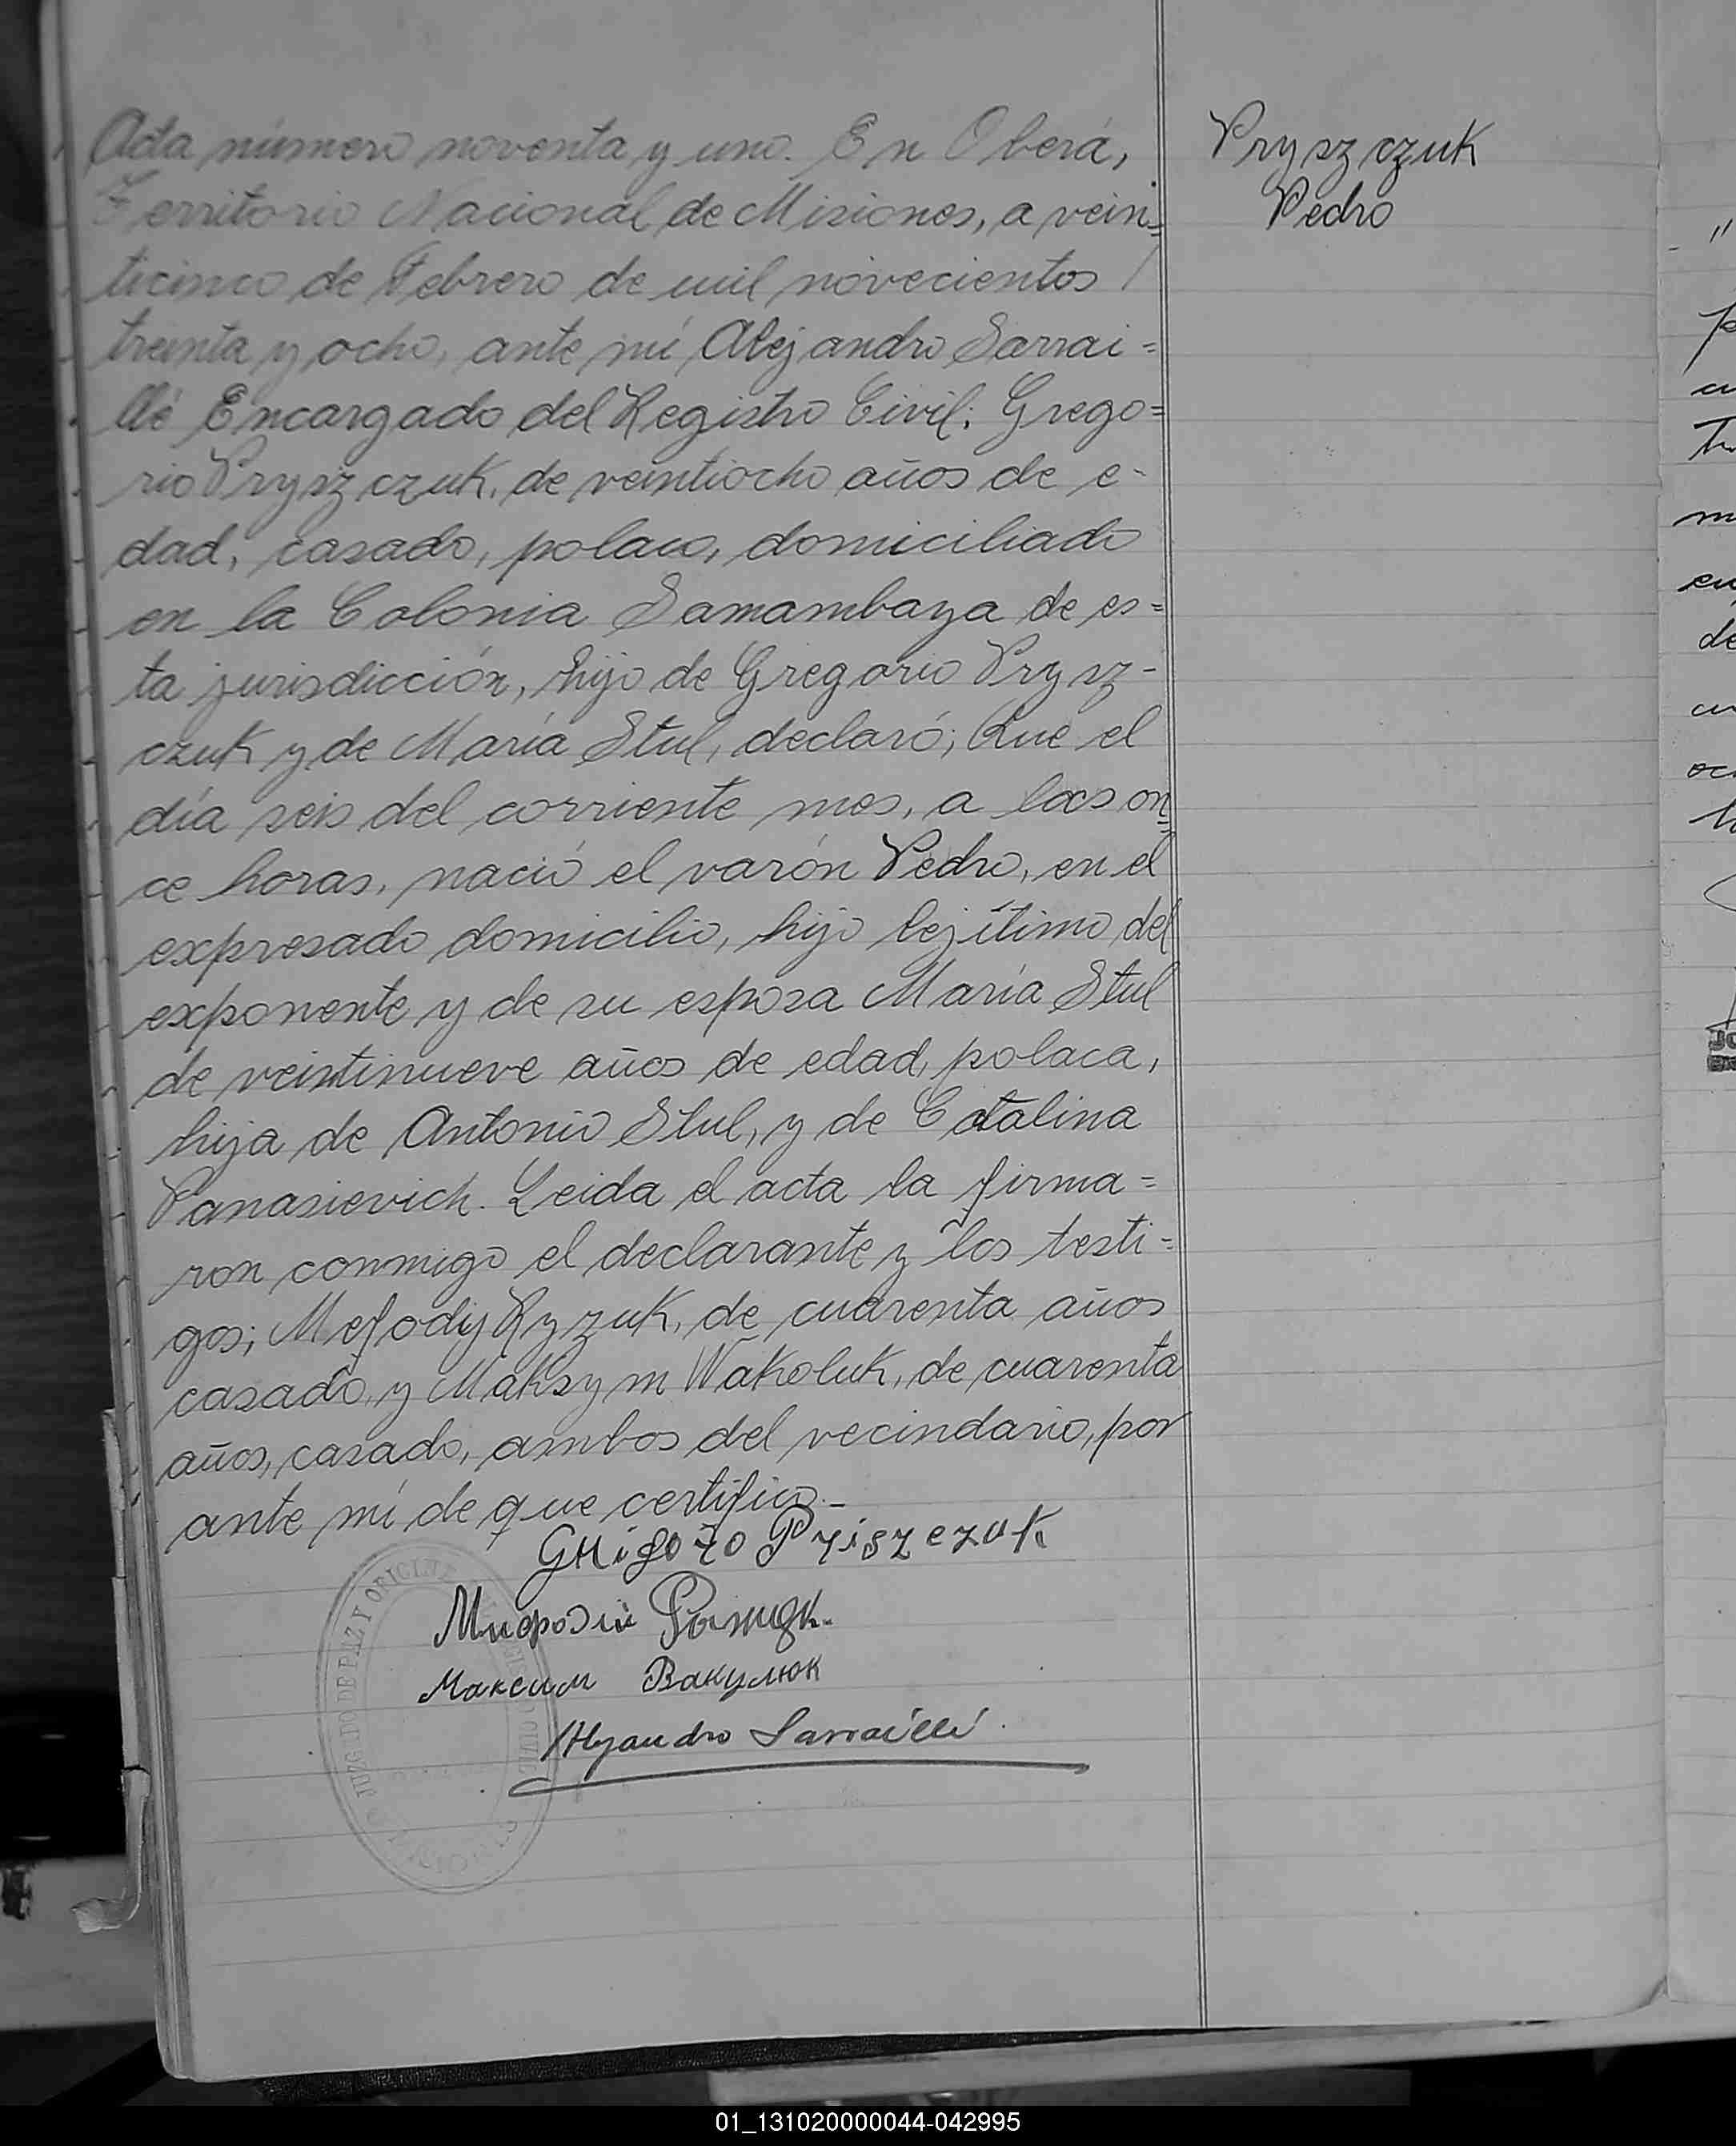 Acta número noventa y uno. En Oberá,
Territorio Nacional de Misiones, a vein=
ticinco de Febrero de mil novecientos
treinta y ocho, ante mí Alejandro Sarrai=
llé Encargado del Registro Civil: Grego=
rio Pryszczuk, de veintiocho años de e-
dad, casado, polaco, domiciliado
en la Colonia Samambaya de es=
ta jurisdicción, hijo de Gregorio Prysz-
czuk y de María Stul, declaró; Que el
día seis del corriente mes, a las on=
ce horas, nació el varón Pedro, en el
expresado domicilio, hijo lejítimo del
exponente y de su esposa María Stul
de veintinueve años de edad, polaca,
hija de Antonio Stul, y de Catalina
Panasievich. Leida el acta la firma=
ron conmigo el declarante y los testi=
gos; Mefody Ryzuk, de cuarenta años
casado, y Maksym Wakoluk, de cuarenta
años, casado, ambos del vecindario, por
ante mí de que certifico.-
Pryszczuk
Pedro
Priszczuk
Максим Вакулюк
Alejandro Sarraillé
JUZGADO DE PAZ Y OFICINA
01_131020000044-042995